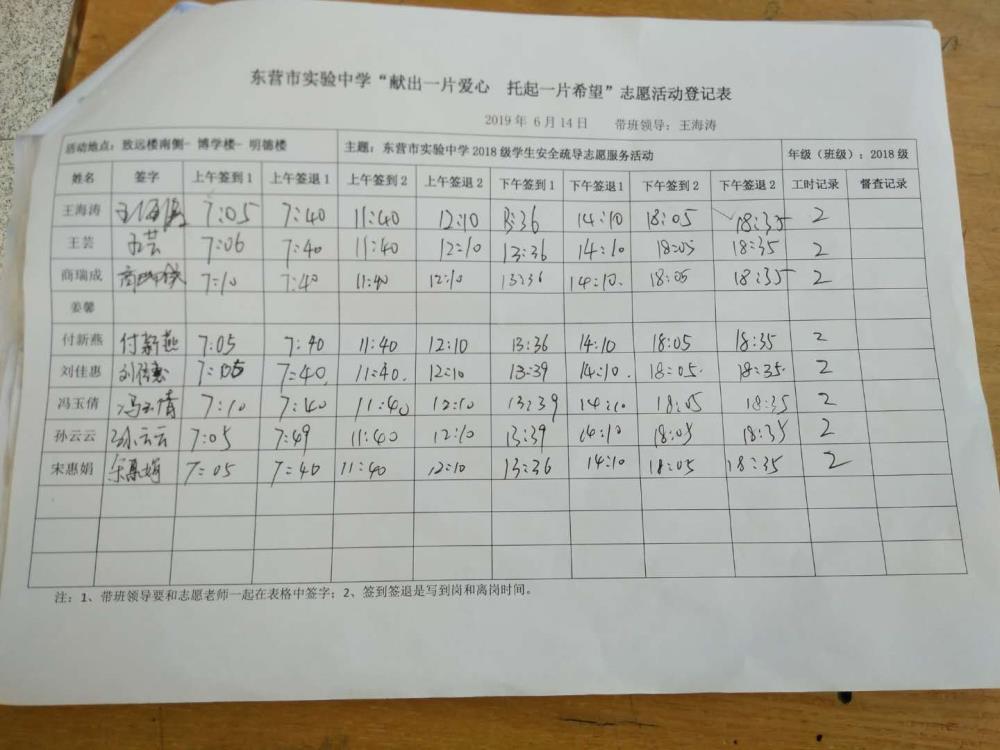 东营市实验中学“献出一片爱心 托起一片希望”志愿活动登记表
2019 年 6 月 14 日 带班领导：王海涛
活动地点：致远楼南侧- 博学楼- 明德楼 主题：东营市实验中学 2018 级学生安全疏导志愿服务活动 年级（班级）：2018 级
姓名 签字 上午签到 1 上午签退 1 上午签到 2 上午签退 2 下午签到 1 下午签退 1 下午签到 2 下午签退 2 工时记录 督查记录
王海涛 王海涛 7:05 7:40 11:40 12:10 13:36 14:10 18:05 18:35 2
王芸 王芸 7:06 7:40 11:40 12:10 13:36 14:10 18:05 18:35 2
商瑞成 商瑞成 7:10 7:40 11:40 12:10 13:36 14:10. 18:05 18:35 2
姜馨
付新燕 付新燕 7:05 7:40 11:40 12:10 13:36 14:10 18:05 18:35 2
刘佳惠 刘佳惠 7:05 7:40. 11:40. 12:10 13:39 14:10. 18:05. 18:35. 2
冯玉倩 冯玉倩 7:10 7:40 11:40 12:10 13:39 14:10 18:05 18:35 2
孙云云 孙云云 7:05 7:49 11:40 12:10 13:39 14:10 18:05 18:35 2
宋惠娟 宋惠娟 7:05 7:40 11:40 12:10 13:36 14:10 18:05 18:35 2
注：1、带班领导要和志愿老师一起在表格中签字；2、签到签退是写到岗和离岗时间。